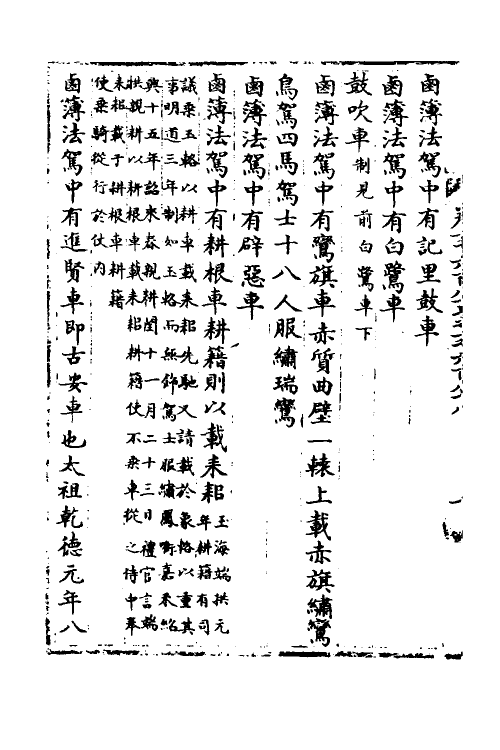 鹵薄法駕中有記里鼓車
鹵薄法駕中有白鷺車
鼓吹車制見前白鷺車下
鹵薄法駕中有鸞旗車赤質曲壁一轅上載赤旗繡鸞
鳥駕四馬駕士十八人服繡瑞鸞
鹵薄法駕中有辟惡車
鹵薄法駕中有耕根車耕籍則以載耒耜玉海端拱元
年耕籍有司
議乘玉輅以耕車載耒耜先馳又請載於象輅以重其
事明道三年制如玉輅而無飾駕士服繡鳳銜嘉禾紹
興十五年詔來春親耕閏十一月二十三日禮官言端
拱親耕以耕根車載耒耜耕籍使不乘車從之侍中奉
耒耜載于耕根車耕籍
使乘騎從行於仗內
鹵薄法駕中有進賢車即古安車也太祖乾德元年八